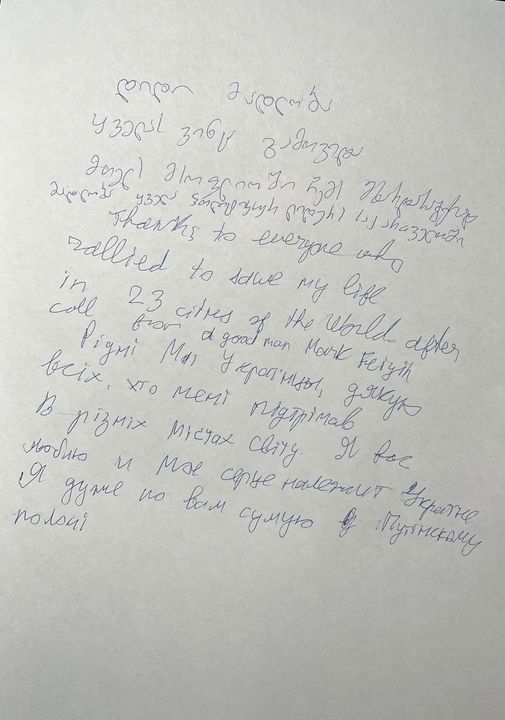 დიდი მადლობა
ყველას ვინც გამოვიდა
მთელ მსოფლიოში ჩემ მხარდასაჭერად
მადლობა ყველა
Thanks to everyone who
rallied to save my life
in 23 cities of the World after
call from a good man Mark Feigin
Рідні Мої Українці, дякую
всіх, хто мені підтрімав
В різніх містах світу. Я вас
люблю и моє серце належит Україне
Я дуже по вам сумую у Путінскому
полоні